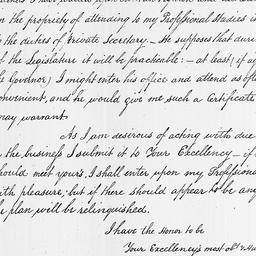 on the propriety of attending to my Professional studies in
the duties of private Secretary. He supposes that duri
of the Legislature it will be practicable: – at least (if ag
the Governor) I might enter his office and attend as of
convenient, and he would give me such a Certificate
may warrant.
As I am desirous of acting with due
the business I submit it to Your Excellency – if
should meet yours, I shall enter upon my Professiona
with pleasure; but if there should appear to be any
the plan will be relinquished.
I have the Honor to be
Your Excellency's most obt & Hu